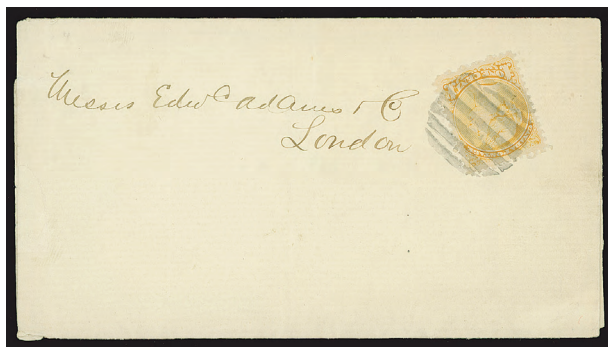 Messrs Edwd Adams & Co
London